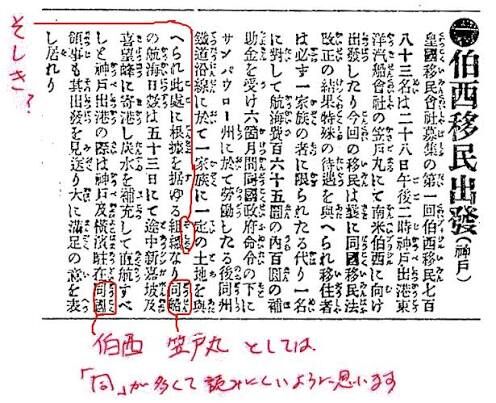 伯西移民出發（神戸）
皇國移民會社募集の第一回伯西移民七百
八十三名は二十八日午後二時神戸出港東
洋汽船會社の笠戸丸にて南米伯西に向け
出發したり今回の移民は曩に同國移民法
改正の結果特殊の待遇を與へられ移住者
は必ず一家族の者に限られたる代り一名
に對して航海費百六十五圓の內百圓の補
助金を受け六箇月間同國政府命令の下に
サンパウロー州に於て勞働したる後同州
鐵道沿線に於て一家族に一定の土地を與
へられ此處に根據を据ゆる組織なり同船
の航海日數は五十三日にて途中新嘉坡及
喜望峰に寄港し炭水を補充して直航すべ
しと神戸出港の際は神戸及橫濱駐在同國
領事も其出發を見送り大に滿足の意を表
し居れり
そしき？
伯西 笠戸丸 としては
「同」が多くて読みにくいように思います